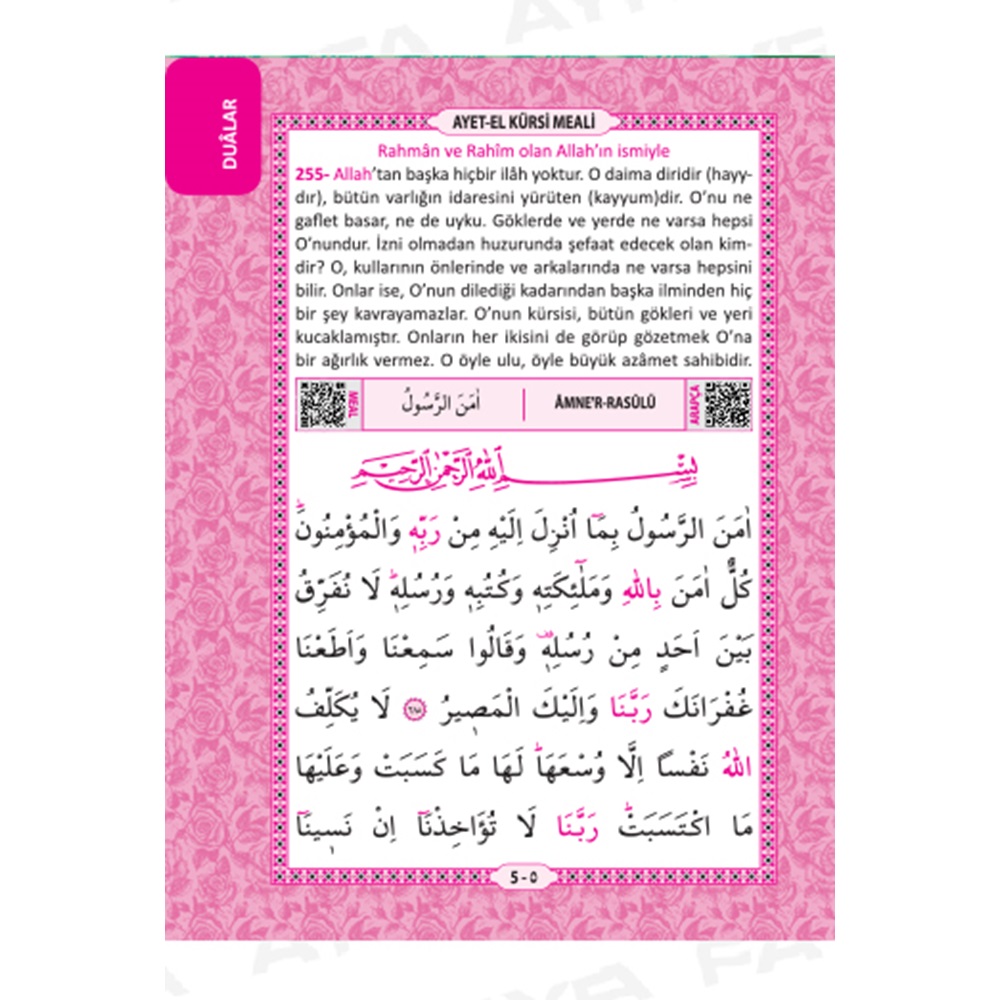 DUÂLAR
AYET-EL KÜRSİ MEALİ
Rahmân ve Rahîm olan Allah’ın ismiyle
255- Allah’tan başka hiçbir ilâh yoktur. O daima diridir (hayy-
dır), bütün varlığın idaresini yürüten (kayyum)dir. O’nu ne
gaflet basar, ne de uyku. Göklerde ve yerde ne varsa hepsi
O’nundur. İzni olmadan huzurunda şefaat edecek olan kim-
dir? O, kullarının önlerinde ve arkalarında ne varsa hepsini
bilir. Onlar ise, O’nun dilediği kadarından başka ilminden hiç
bir şey kavrayamazlar. O’nun kürsisi, bütün gökleri ve yeri
kucaklamıştır. Onların her ikisini de görüp gözetmek O’na
bir ağırlık vermez. O öyle ulu, öyle büyük azâmet sahibidir.
MEAL
اٰمَنَ الرَّسُولُ
ÂMNE'R-RASÛLÜ
ARAPÇA
بِسْمِ اللهِ الرَّحْمٰنِ الرَّحِيمِ
اٰمَنَ الرَّسُولُ بِمَٓا اُنْزِلَ اِلَيْهِ مِنْ رَبِّهٖ وَالْمُؤْمِنُونَۜ
كُلٌّ اٰمَنَ بِاللهِ وَمَلٰٓئِكَتِهٖ وَكُتُبِهٖ وَرُسُلِهٖۜ لَا نُفَرِّقُ
بَيْنَ اَحَدٍ مِنْ رُسُلِهٖ۠ وَقَالُوا سَمِعْنَا وَاَطَعْنَا
غُفْرَانَكَ رَبَّنَا وَاِلَيْكَ الْمَصٖيرُ ﴿٢٨٥﴾ لَا يُكَلِّفُ
اللهُ نَفْسًا اِلَّا وُسْعَهَاۜ لَهَا مَا كَسَبَتْ وَعَلَيْهَا
مَا اكْتَسَبَتْۜ رَبَّنَا لَا تُؤَاخِذْنَٓا اِنْ نَسٖينَٓا
5 - ٥